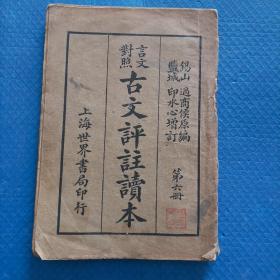 錫山 過商侯原編
鹽城 印水心增訂
第六冊
言文對照
古文評註讀本
上海世界書局印行